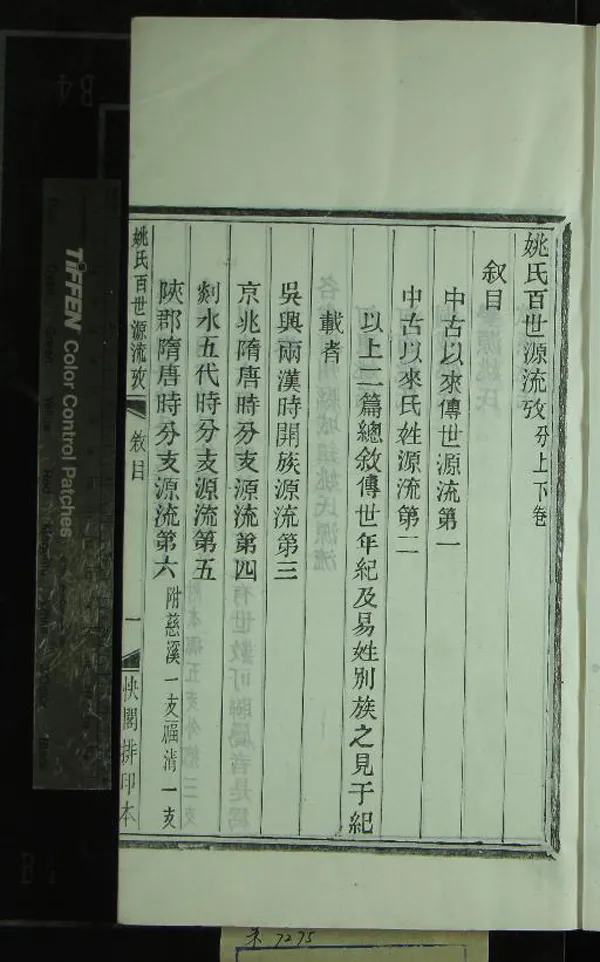 姚氏百世源流攷 分上下卷
叙目
中古以來傳世源流第一
中古以來氏姓源流第二
以上二篇總敘傳世年紀及易姓別族之見于紀
載者
吳興兩漢時開族源流第三
京兆隋唐時分支源流第四
剡水五代時分支源流第五
陝郡隋唐時分支源流第六 附慈溪一支福清一支
姚氏百世源流攷 敘目 一 快閣排印本
TIFFEN Color Control Patches
B4
7275